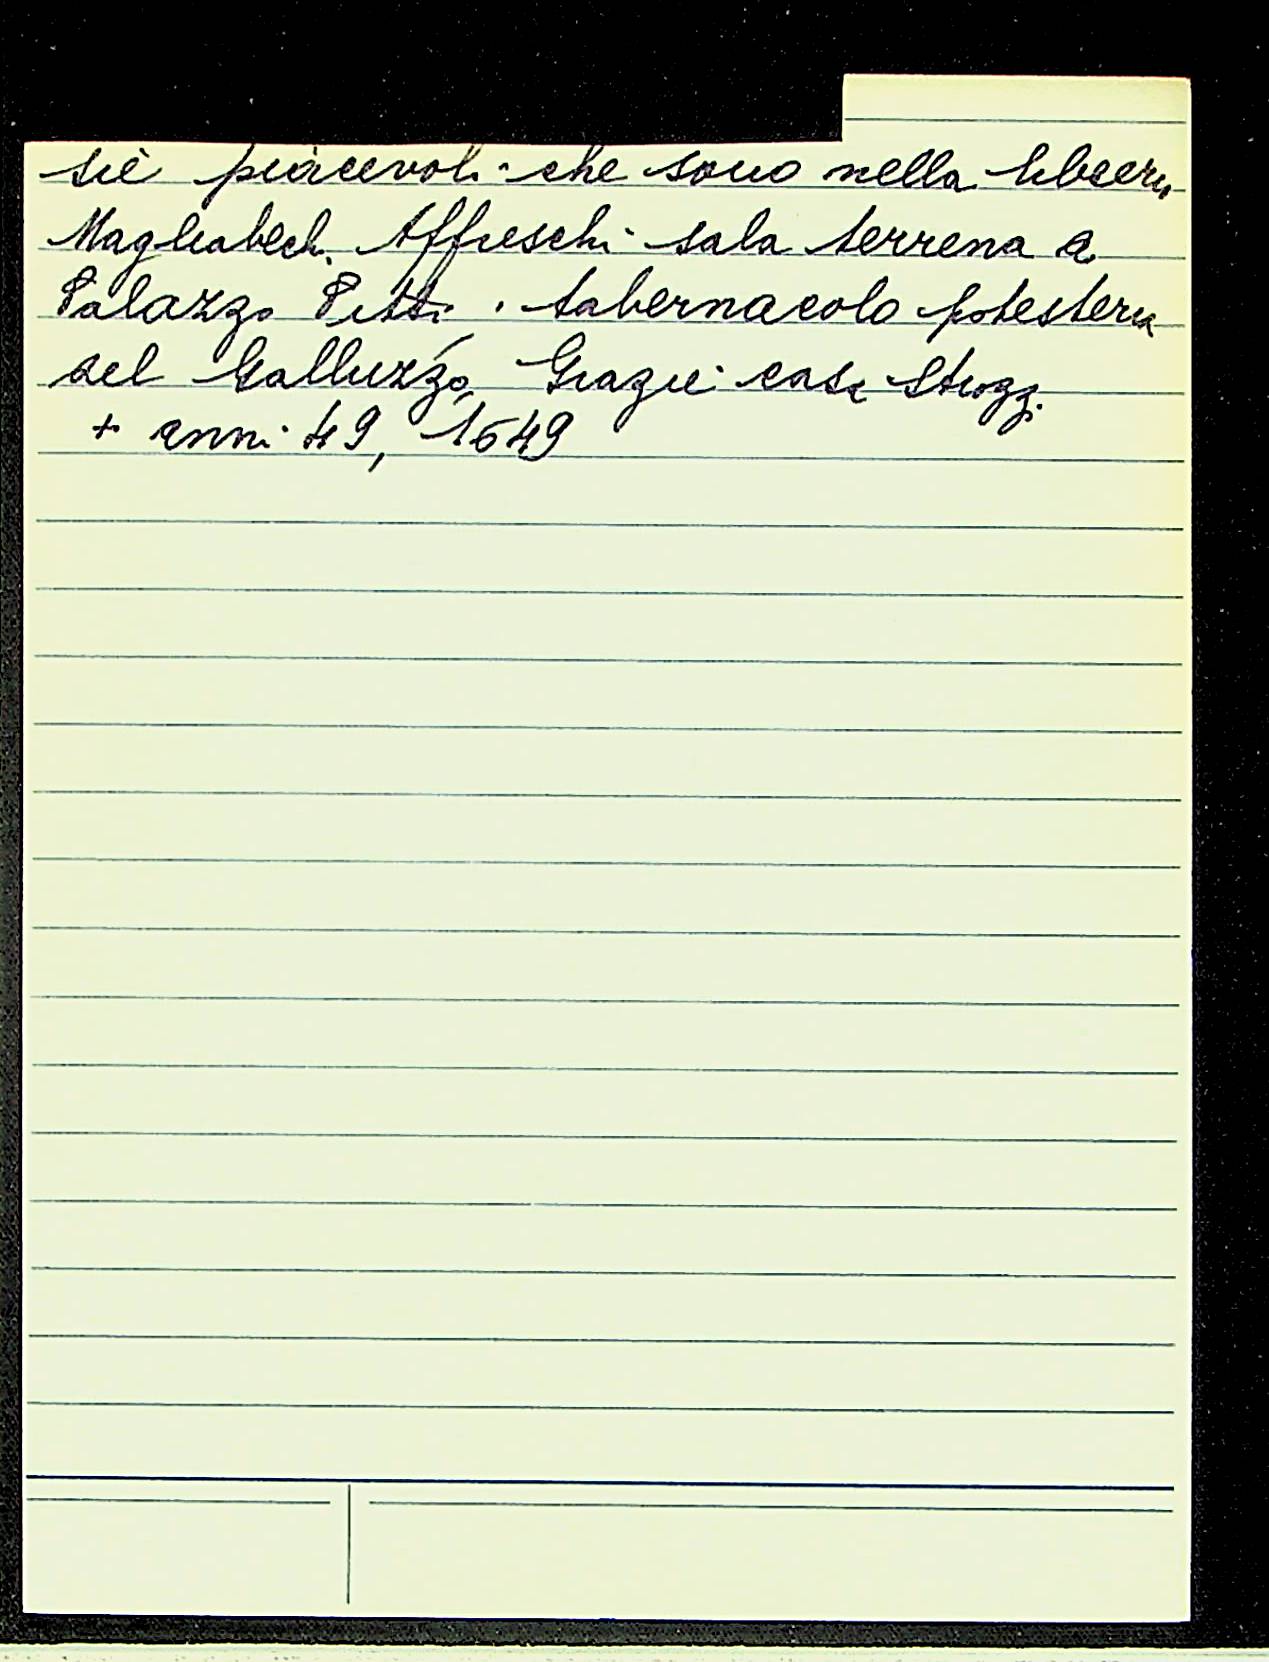 sie piacevoli che sono nella libreria
Magliabech. Affreschi sala terrena a
Palazzo Pitti. tabernacolo potesteria
del Galluzzo, Grazie casa Strozzi
+ anni 49, 1649